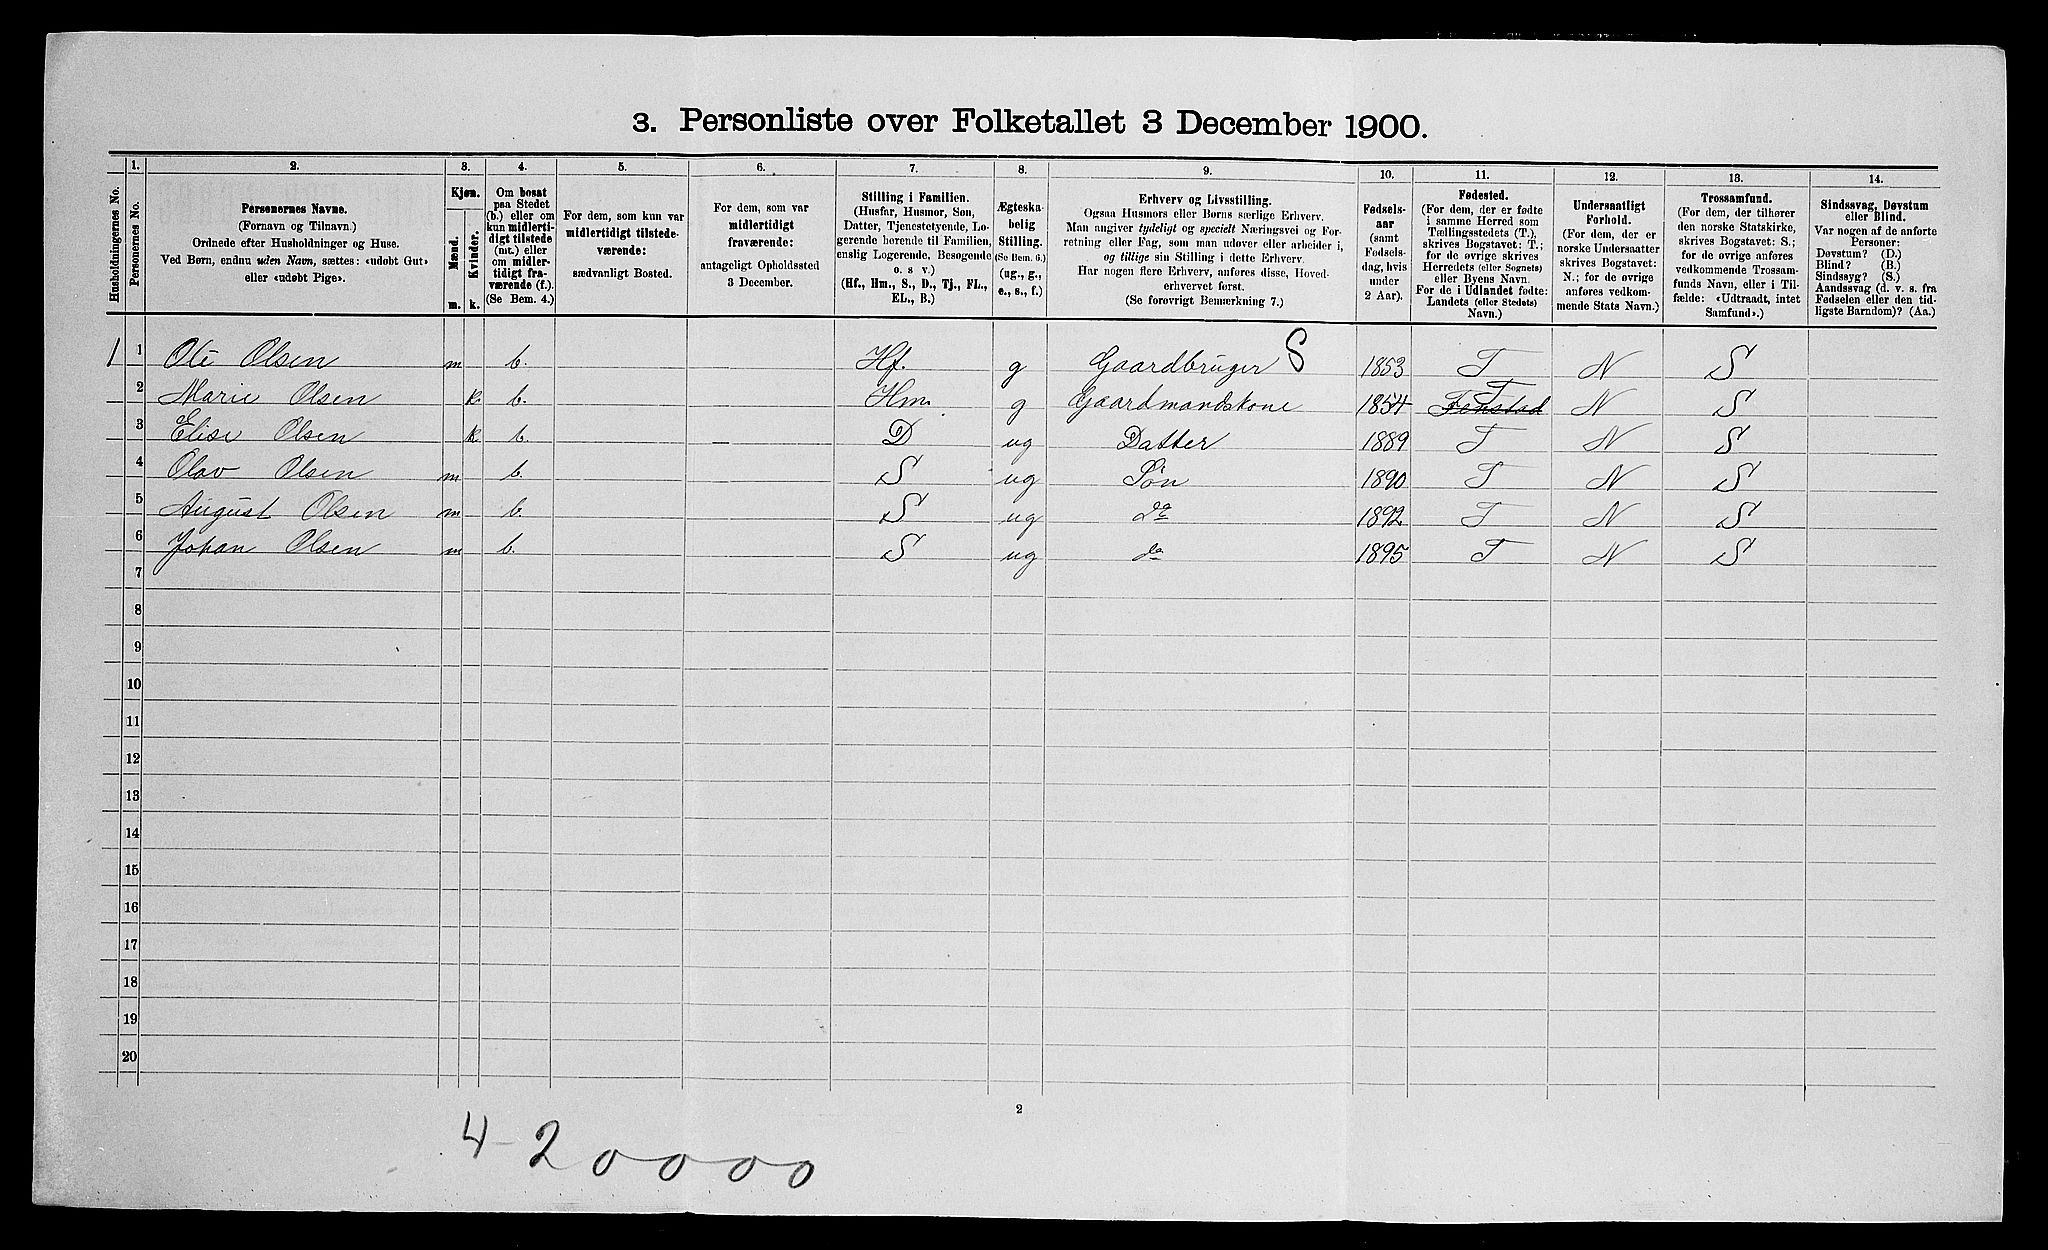 3. Personliste over Folketallet 3 December 1900.
Husholdningernes No.
1.
Personernes No.
2.
Personernes Navne.
(Fornavn og Tilnavn.)
Ordnede efter Husholdninger og Huse.
Ved Børn, endnu uden Navn, sættes: «udøbt Gut»
eller «udøbt Pige».
3.
Kjøn.
Mænd.
Kvinder.
m. k.
4.
Om bosat
paa Stedet
(b.) eller om
kun midlerti-
digt tilstede
(mt.) eller
om midler-
tidigt fra-
værende (f.).
(Se Bem. 4.)
5.
For dem, som kun var
midlertidigt tilstede-
værende:
sædvanligt Bosted.
6.
For dem, som var
midlertidigt
fraværende:
antageligt Opholdssted
3 December.
7.
Stilling i Familien.
(Husfar, Husmor, Søn,
Datter, Tjenestetyende, Lo-
gerende hørende til Familien,
enslig Logerende, Besøgende
o. s v.)
(Hf., Hm., S., D., Tj., FL.,
EL., B.)
8.
Ægteska-
belig
Stilling.
(Se Bem. 6.)
(ug., g.,
e., s., f.)
9.
Erhverv og Livsstilling.
Ogsaa Husmors eller Børns særlige Erhverv.
Man angiver tydeligt og specielt Næringsvei og For-
retning eller Fag, som man udøver eller arbeider i,
og tillige sin Stilling i dette Erhverv.
Har nogen flere Erhverv, anføres disse, Hoved-
erhvervet først.
(Se forøvrigt Bemærkning 7.)
10.
Fødsels-
aar
(samt
Fødsels-
dag, hvis
under
2 Aar).
11.
Fødested.
(For dem, der er fødte
i samme Herred som
Tællingsstedets (T.),
skrives Bogstavet: T.;
for de øvrige skrives
Herredets (eller Sognets)
eller Byens Navn.
For de i Udlandet fødte:
Landets (eller Stedets)
Navn.)
12.
Undersaatligt
Forhold.
(For dem, der er
norske Undersaatter
skrives Bogstavet:
N.; for de øvrige
anføres vedkom-
mende Stats Navn.)
13.
Trossamfund.
(For dem, der tilhører
den norske Statskirke,
skrives Bogstavet: S.;
for de øvrige anføres
vedkommende Trossam-
funds Navn, eller i Til-
fælde: «Udtraadt, intet
Samfund».)
14.
Sindssvag, Døvstum
eller Blind.
Var nogen af de anførte
Personer:
Døvstum? (D.)
Blind? (B.)
Sindssyg? (S.)
Aandssvag (d. v. s. fra
Fødselen eller den tid-
ligste Barndom)? (Aa.)
1 1 Ole Olsen m b. Hf. g Gaardbruger S 1853 T N S
2 Marie Olsen k. b. Hm. g Gaardmandskone 1854 Fenstad T N S
3 Elise Olsen k b. D ug Datter 1889 T N S
4 Olav Olsen m b. S ug Søn 1890 T N S
5 August Olsen m b. S ug do 1892 T N S
6 Johan Olsen m b. S ug do 1895 T N S
7
8
9
10
11
12
13
14
15
16
17
18
19
20
2
4-20000